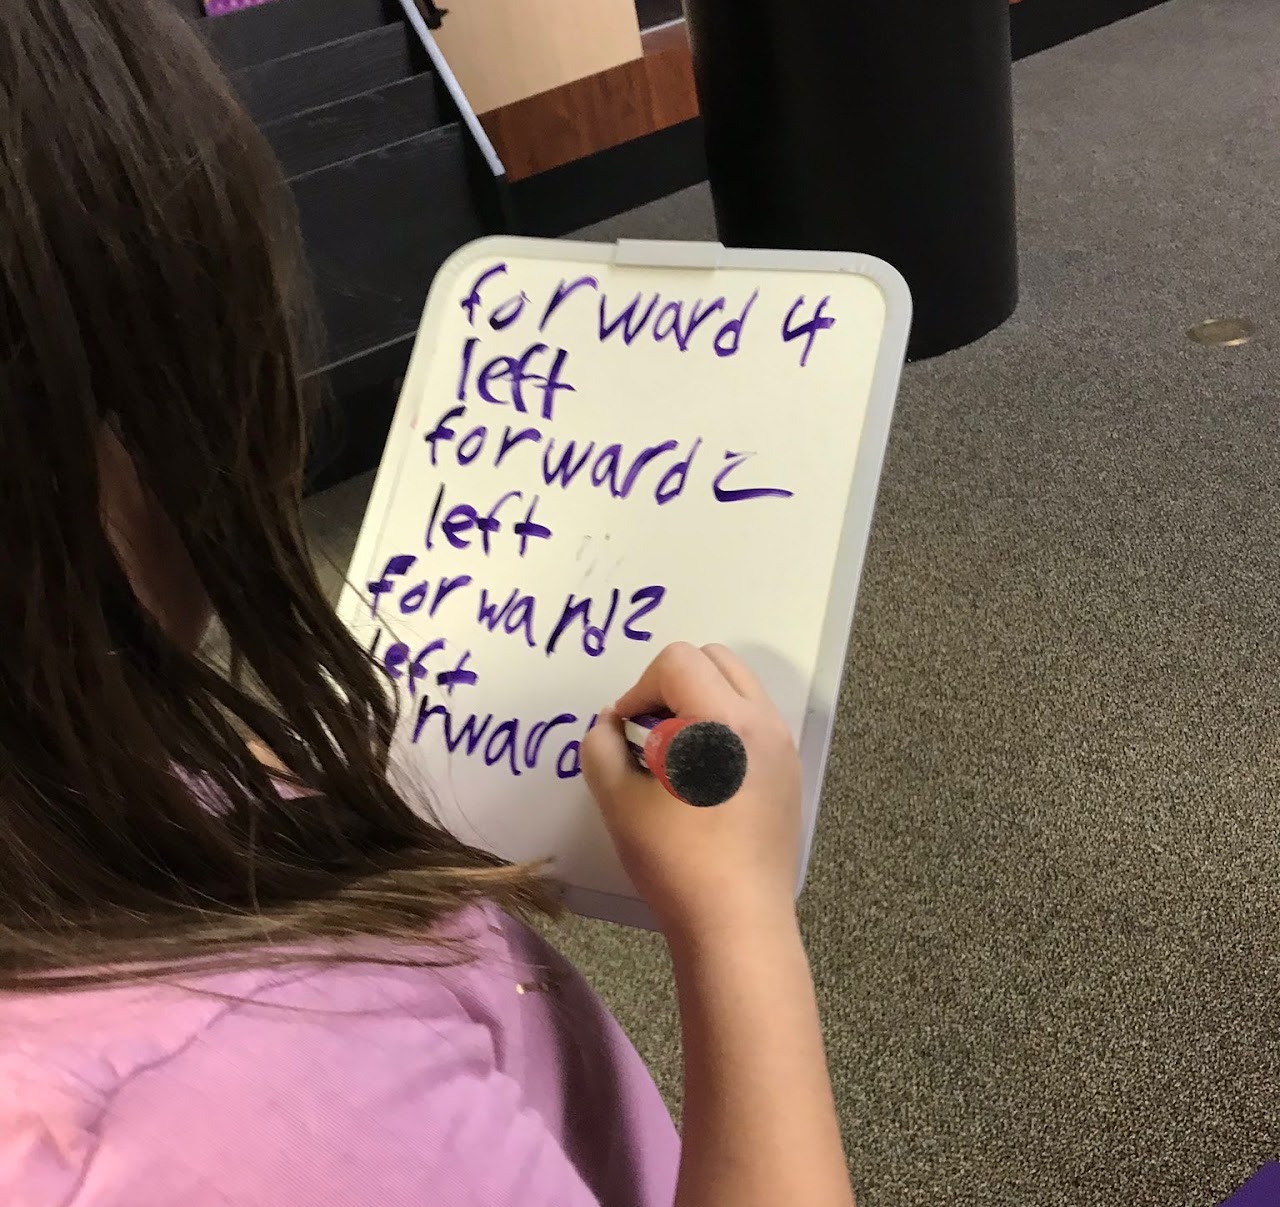 forward 4
left
forward 2
left
forward 2
left
rward